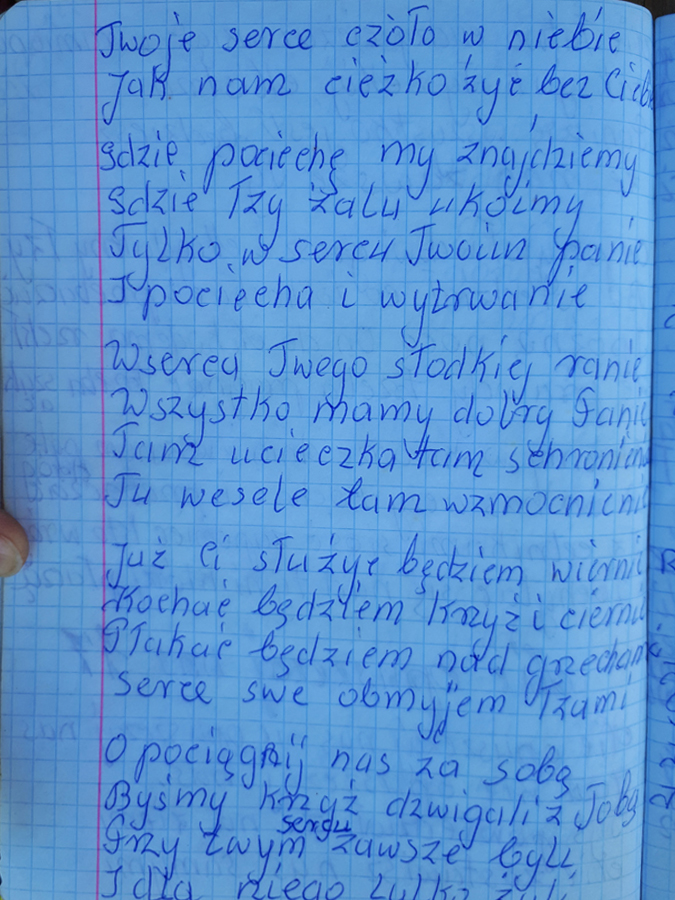 Twoje serce czoło w niebie
Jak nam cieżko żyć bez Ciebi
gdzie pociechę my znajdziemy
gdzie łzy żalu ukoimy
Tylko w sercu Twoim panie
I pociecha i wytrwanie
W sercu Twego słodkiej ranie
Wszystko mamy dobry Panie
Tam ucieczka tam schronieni
Tu wesele tam wzmocnieni
Już Ci służyć będziem wierni
Kochać będziem krzyż i cierni
Płakać będziem nad grzecham
serce swe obmyjem łzami
O pociągnij nas za sobą
Byśmy krzyż dzwigali z Tobą
Przy twym sercu zawsze byli
I dla niego tylko żyli